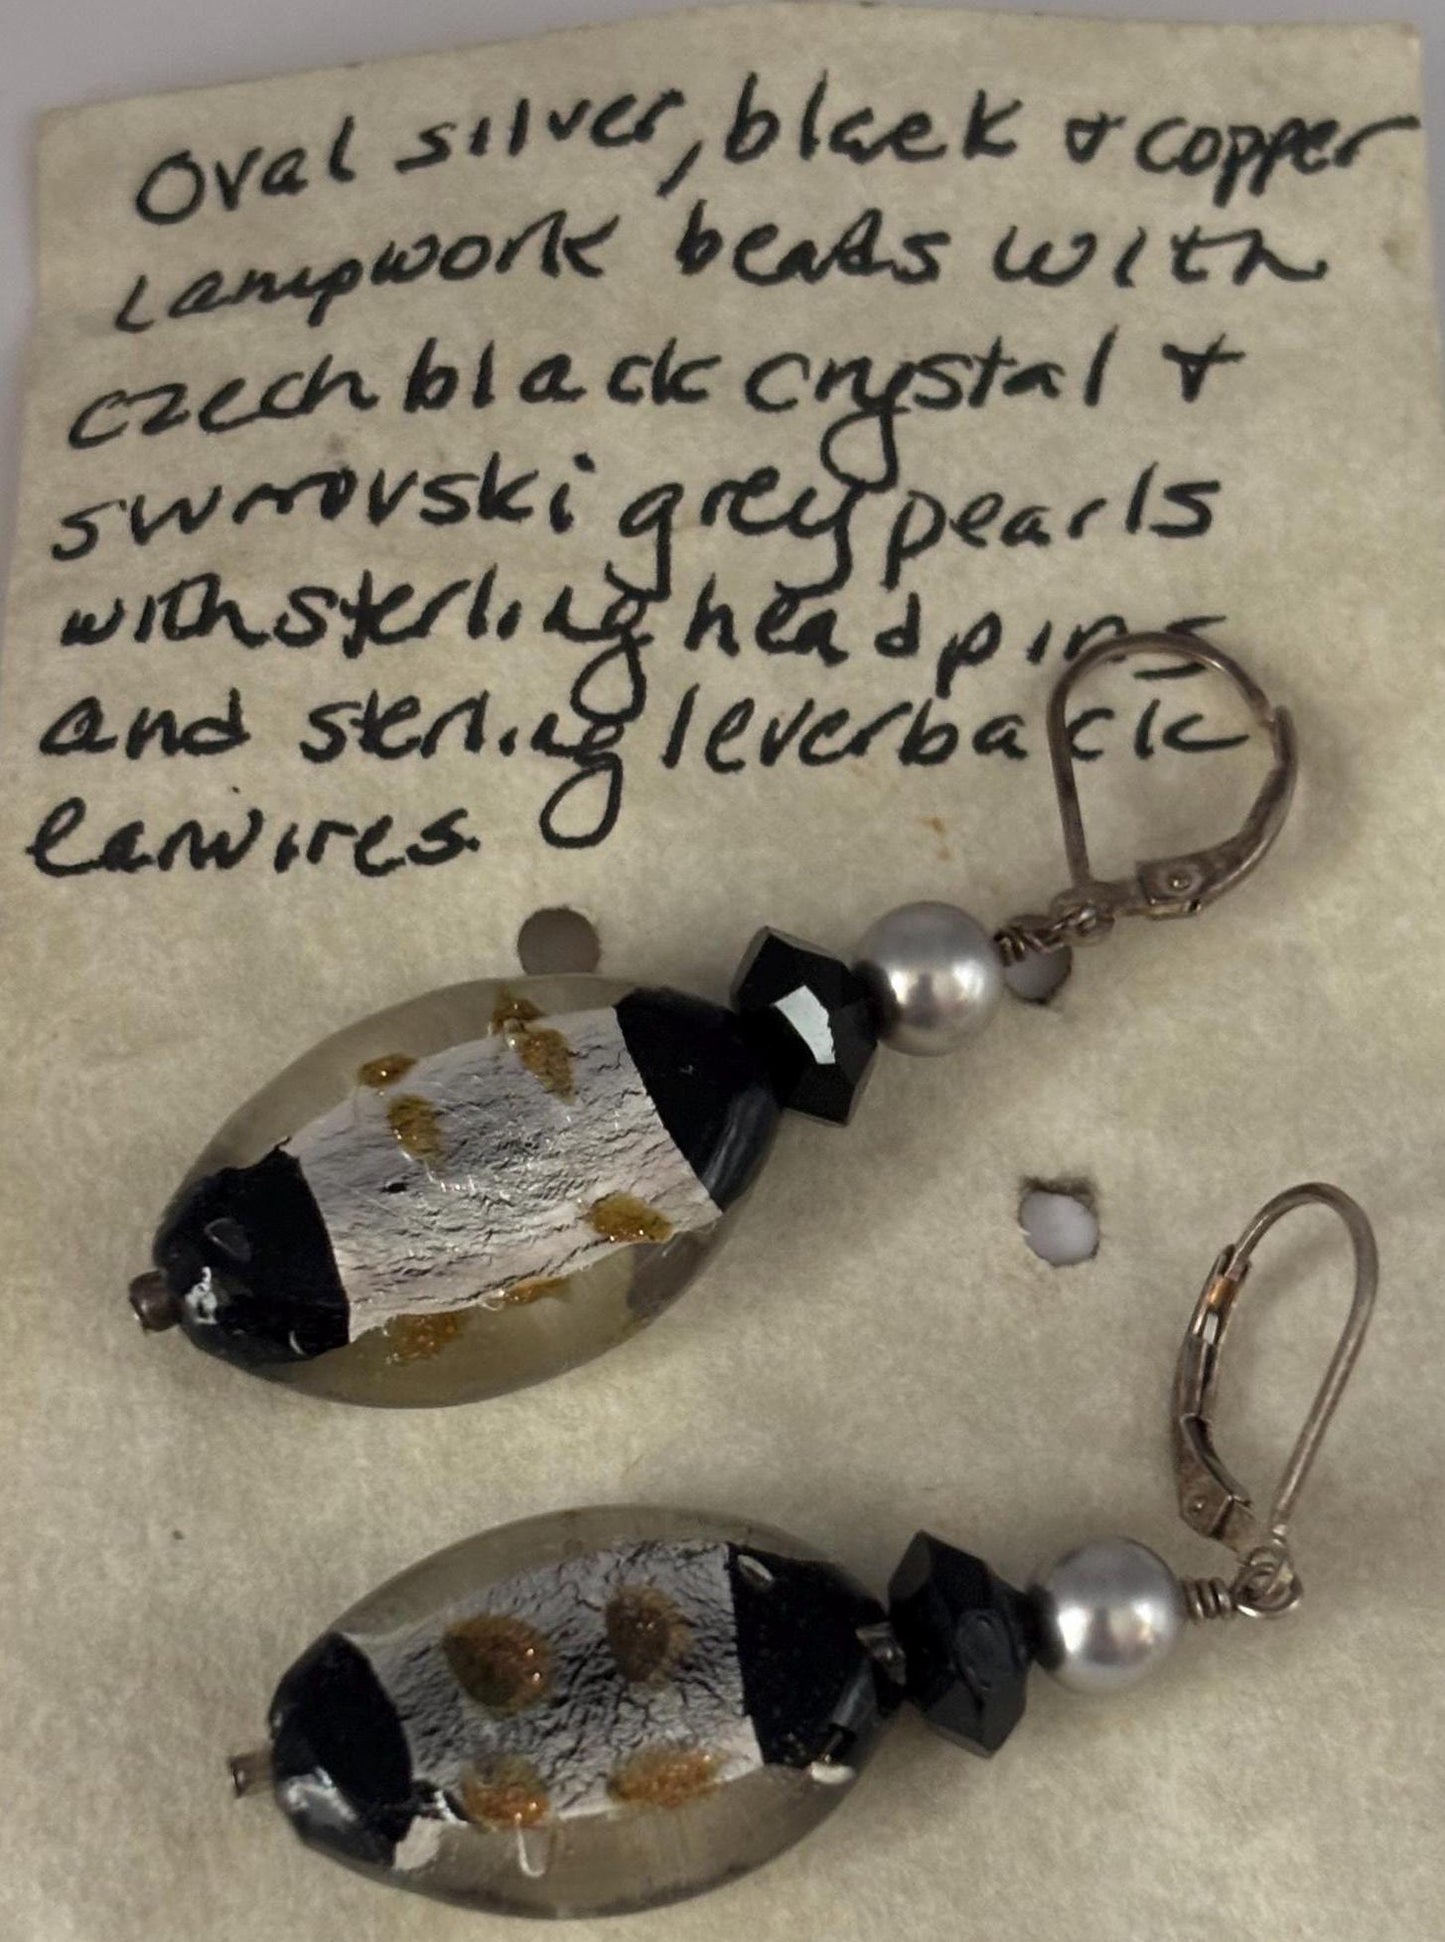 Oval silver, black & copper
Lampwork beads with
czech black crystal &
swarovski grey pearls
with sterling headpins
and sterling leverback
earwires.